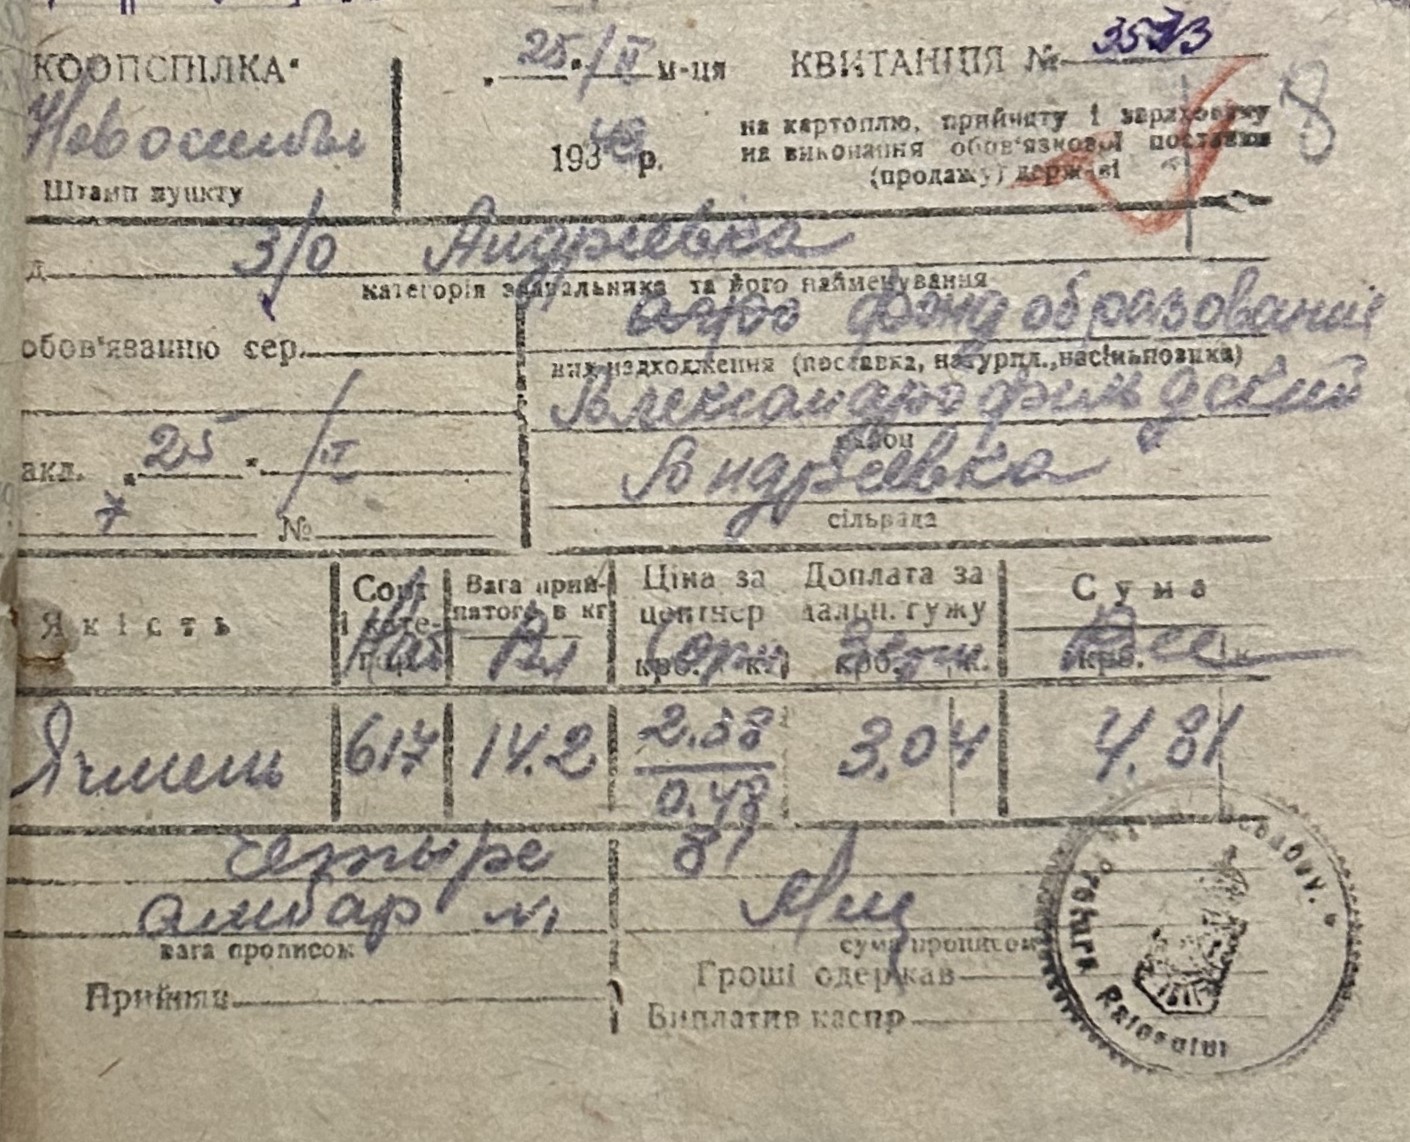 КООПСПІЛКА"
„25"/II м-ця
КВИТАНЦІЯ № 3573
8
193 р.
на картоплю, прийняту і зараховану
на виконання обов'язкової поставки
(продажу) державі
Штамп пункту
З/О Андреевка
категорія здавальника та його найменування
фонд образование
обов'язанню сер.
вид надходження (поставка, натурпл., насіньпозика)
Александрофильдский
район
акл. „25" /II
Андреевка
7 №
сільрада
Якість
Сорт і кате-
Вага прий-
нятого в кг
Ціна за
центнер
крб. к.
Доплата за
дальн. гужу
крб. к.
Сума
крб. к.
Нат Вл Сорн Зерн Все
Ячмень 617 14.2 2.58 3.04 4.81
0.48
четыре 81
амбар №1
вага прописом
сума прописом
Гроші одержав
Прийняв
Виплатив касир